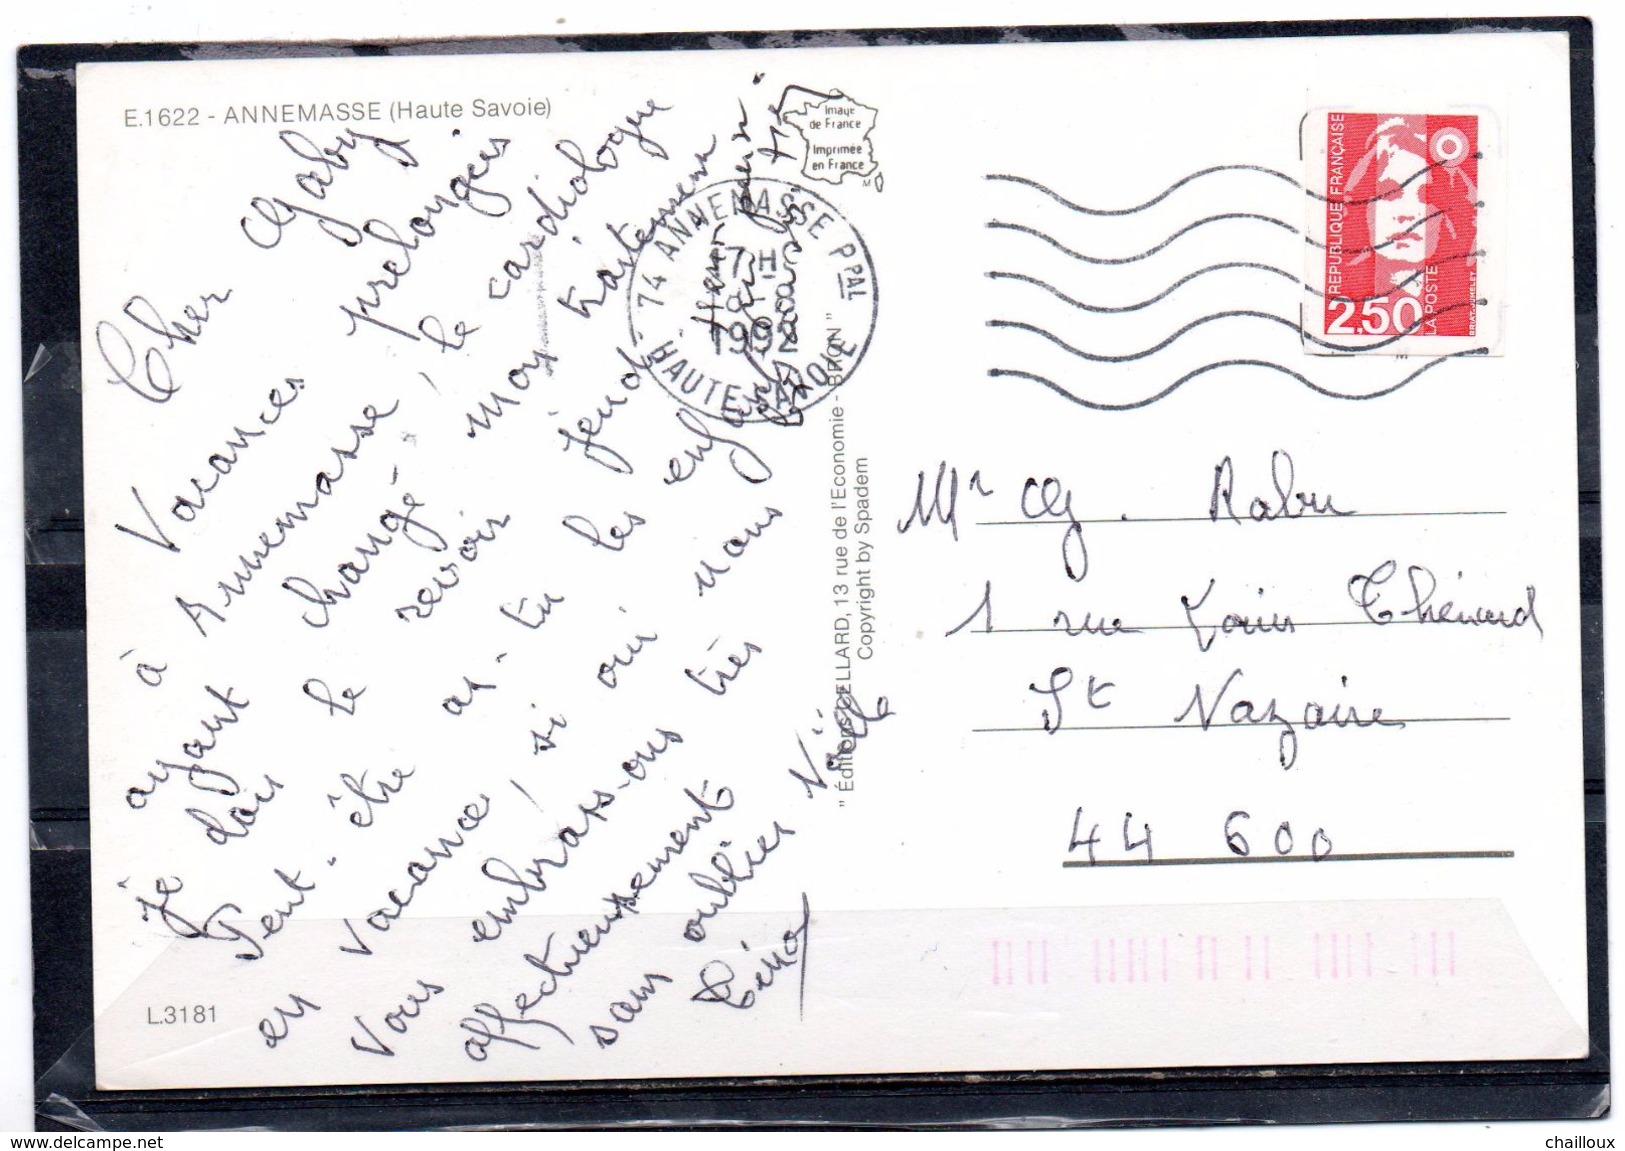 E.1622 - ANNEMASSE (Haute Savoie)
Cher Gaby
Vacances prolongées
à Annemasse, le cardiologue
ayant changé mon traitement
je dois le revoir jeudi
Peut-être as-tu les enfants
en vacances, si oui nous
vous embrassons très
affectueusement
sans oublier
L.3181
Image
de France
Imprimée
en France
74 ANNEMASSE PPAL
HAUTE SAVOIE
1992
" Éditions CELLARD, 13 rue de l'Economie - BRON "
Copyright by Spadem
RÉPUBLIQUE FRANÇAISE
2,50
LA POSTE
Mr G. Rabu
1 rue Louis Thénard
St Nazaire
44 600
www.delcampe.net
chailloux